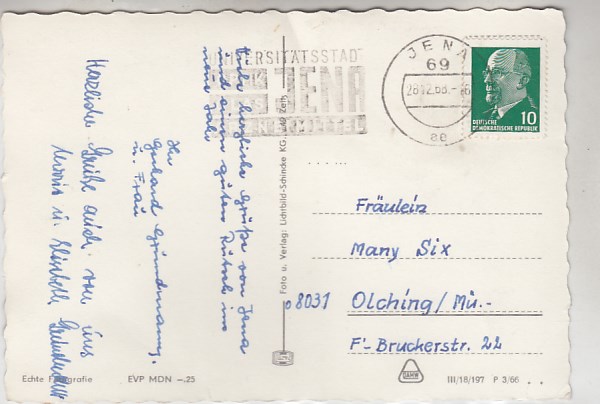 UNIVERSITÄTSSTADT
JENA
JENA
69
28.12.66.-16
ae
10
DEUTSCHE
DEMOKRATISCHE REPUBLIK
Viele herzliche Grüße von Jena
und einen guten Rutsch ins
neue Jahr
Ihr
Gerhard Grundmann,
u. Frau
Herzliche Grüße auch von uns
u. Elisabeth
Foto u. Verlag: Lichtbild-Schincke KG., Zeitz
Fräulein
Many Six
8031 Olching/Mü.-
F'-Bruckerstr. 22
Echte Fotografie EVP MDN –.25
DAMW
III/18/197 P 3/66